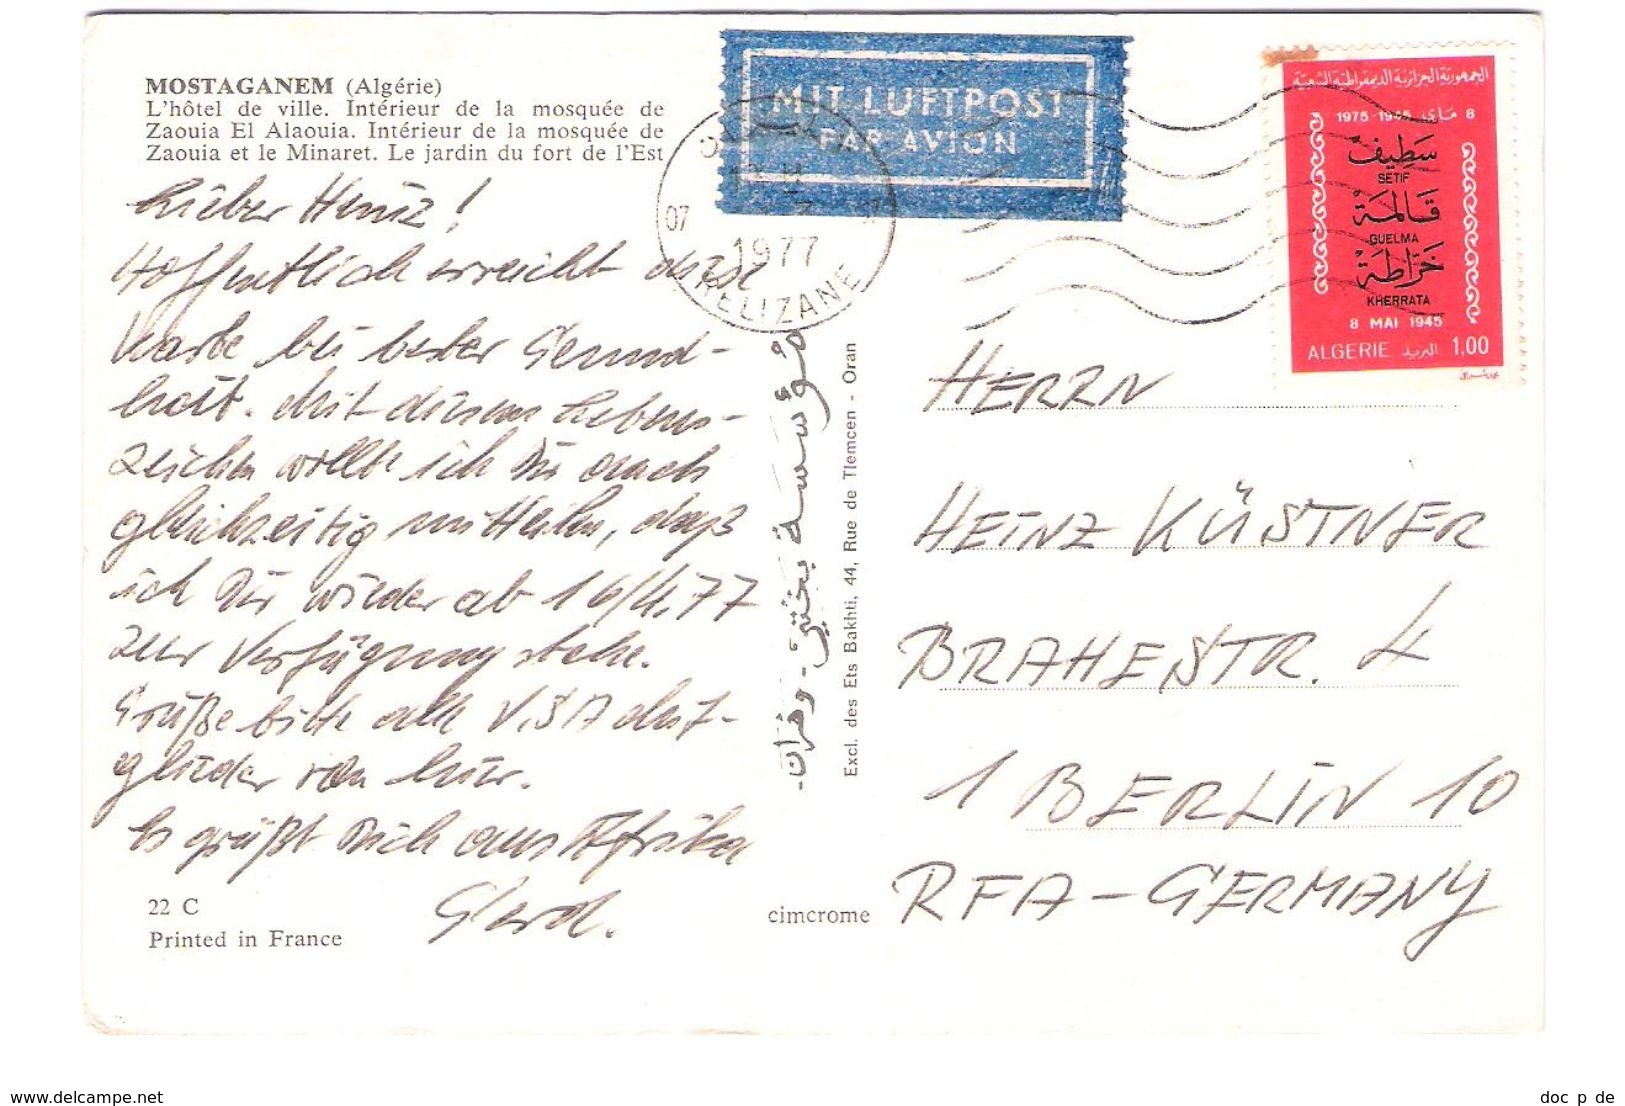 MOSTAGANEM (Algérie)
L'hôtel de ville. Intérieur de la mosquée de
Zaouia El Alaouia. Intérieur de la mosquée de
Zaouia et le Minaret. Le jardin du fort de l'Est
Lieber Heinz!
Hoffentlich erreicht diese
Karte bei bester Gesund-
heit. Mit diesem Lebens-
zeichen wollte ich Dir auch
gleichzeitig mitteilen, daß
ich Dir wieder ab 16/4.77
zur Verfügung stehe.
Grüße bitte alle V.SA Mit-
glieder von hier.
Es grüßt Dich aus Afrika
Gerd.
22 C
Printed in France
مؤسسة بختي - وهران -
Excl. des Ets Bakhti, 44, Rue de Tlemcen - Oran
cimcrome
MIT LUFTPOST
PAR AVION
07
1977
RELIZANE
الجمهورية الجزائرية الديمقراطية الشعبية
8 ماي 1945-1975
سطيف
SETIF
قالمة
GUELMA
خراطة
KHERRATA
8 MAI 1945
ALGERIE البريد 1,00
HERRN
HEINZ KÜSTNER
BRAHESTR. 4
1 BERLIN 10
RFA - GERMANY
www.delcampe.net
doc_p_de